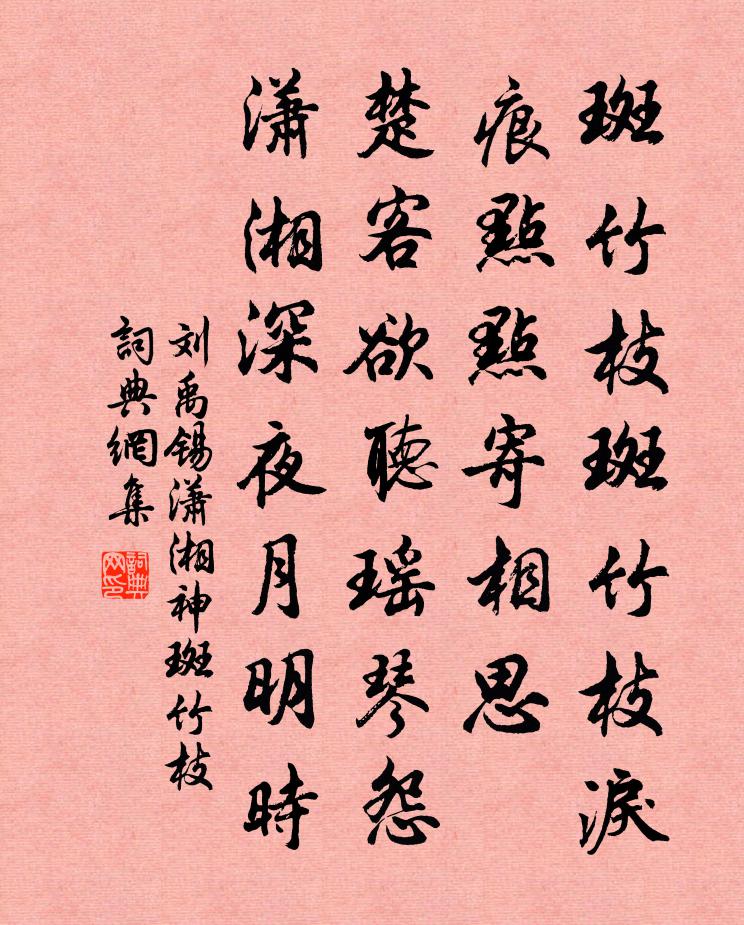 斑竹枝斑竹枝淚
痕點點寄相思
楚客欲聽瑶琴怨
瀟湘深夜月明時
刘禹锡瀟湘神斑竹枝
詞典網集
詞典网印